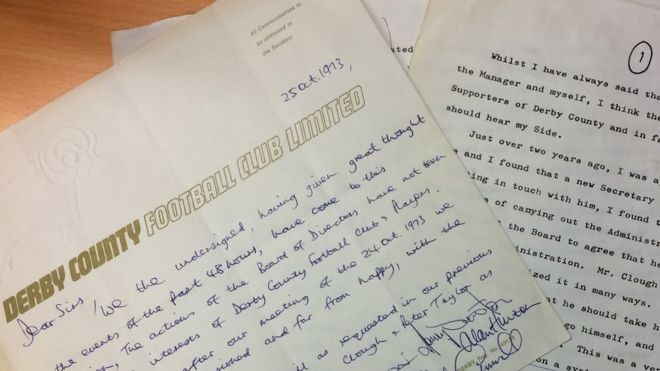 All Communications to
be addressed to
the Secretary
25 Oct. 1973,
DERBY COUNTY FOOTBALL CLUB LIMITED
Dear Sirs,
We the undersigned, having given great thought
the events of the past 48 hours, have come to this
The actions of the Board of Directors have not been
interests of Derby County Football Club & Players.
after our meeting of the 24 Oct. 1973 we
and far from happy, with the
as requested in our previous
Clough & Peter Taylor as
ated
1
Whilst I have always said tha
the Manager and myself, I think the
Supporters of Derby County and in fa
should hear my Side.
Just over two years ago, I was a
and I found that a new Secretary
ing in touch with him, I found t
of canying out the Administra
the Board to agree that he
ministration. Mr. Clough
ized it in many ways.
at he should take h
go himself, and
This was a ver
on a syst